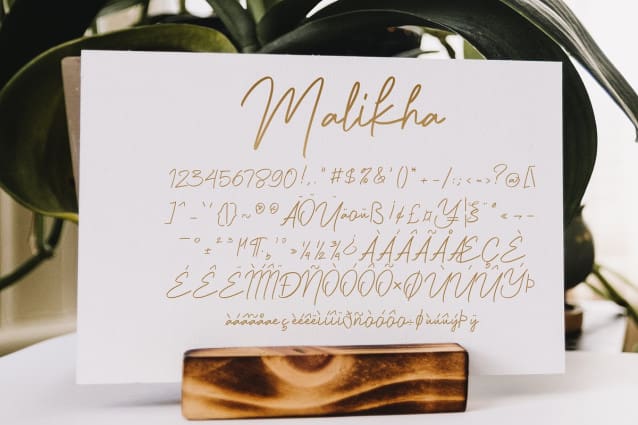 Malikha
1234567890!,."#$%&'()*+-/:;<=>?@[\
]^_`{}~®®ÄÖÜäöüß¡¢£¤¥¦§¨«¬-
¯°±²³µ¶·¸¹º»¼½¾¿ÀÁÂÃÅÆÇÈ
ÉÊËÌÍÎÏÐÑÒÓÔÕ×ØÙÚÛÝÞ
àáâãåæçèéêëìíîïðñòóôõ÷øùúûýþÿ